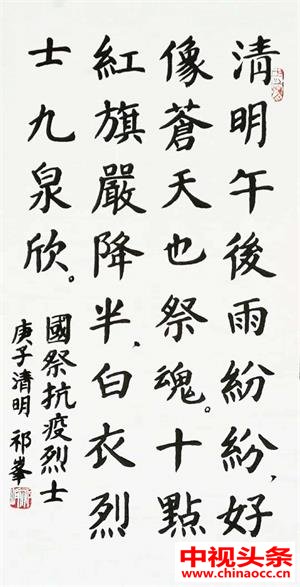 清明午後雨紛紛,好
像蒼天也祭魂。十點
紅旗嚴降半,白衣烈
士九泉欣。
國祭抗疫烈士
庚子清明 祁峯
中视头条
www.chinaocc.cn